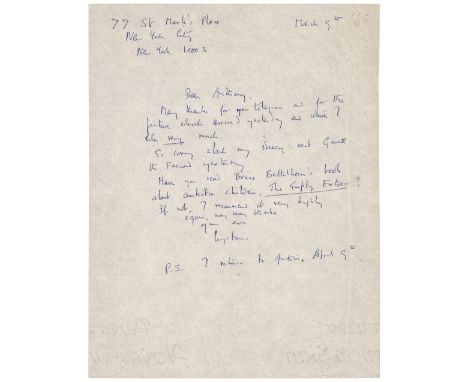 77 St Mark's Place
March 9th
New York City
New York 10003
Dear Anthony,
Many thanks for your telegram and for the
picture which arrived yesterday and which I
like very much.
So sorry about my
the Faccord yesterday
Have you read Bruno Bettelheim's book
about autistic children, The Empty Fortress?
If not, I recommend it very highly
again, many many thanks
yours ever
Wystan
P.S. I return to Austria, April 9th